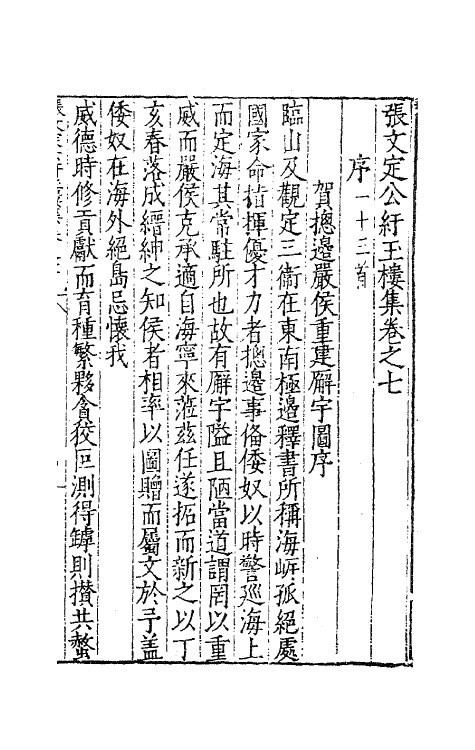 張文定公紆玉樓集卷之七
序一十三首
賀摠邊嚴侯重建廨宇圖序
臨山及觀定三衛在東南極邊釋書所稱海㟁孤絕處
國家命指揮優才力者摠邊事偹倭奴以時警廵海上
而定海其常駐所也故有廨宇隘且陋當道謂罔以重
威而嚴侯克承適自海寧來蒞茲任遂拓而新之以丁
亥春落成縉紳之知侯者相率以圖贈而屬文於予盖
倭奴在海外絕島忌懷我
威德時修貢獻而育種繁夥貪狡叵測得罅則攅共螫